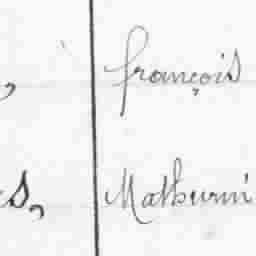 , françois
es, Mathurni